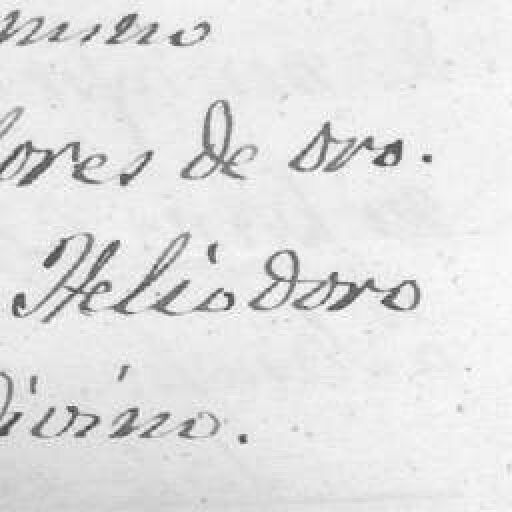 mino
lores de oro.
Heliodoro
divino.